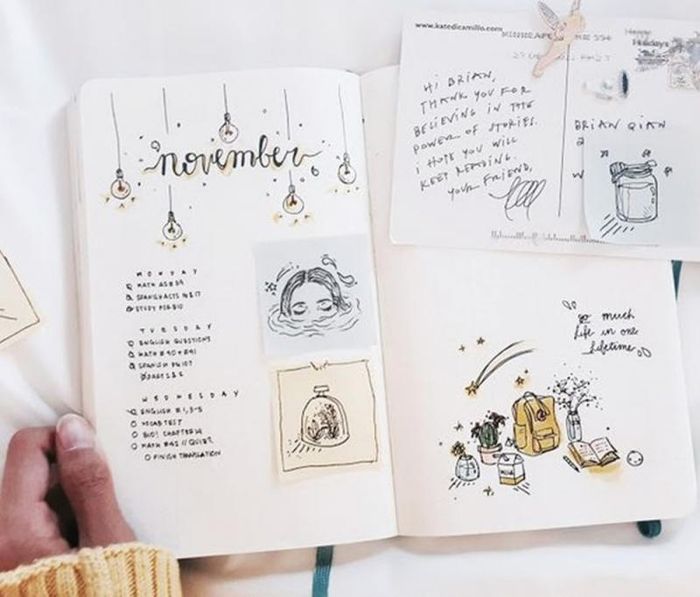 november
MONDAY
MATH
SPANISH
STUDY FOR BIO
TUESDAY
ENGLISH QUESTIONS
MATH #40 + #41
SPANISH
WEDNESDAY
ENGLISH # 1, 3-5
VOCAB TEST
BIO! CHAPTER
MATH #42 // QUIZ!
FINISH TRANSLATION
www.katedicamillo.com
HI BRIAN,
THANK YOU FOR
BELIEVING IN THE
POWER OF STORIES.
I HOPE YOU WILL
KEEP READING.
YOUR FRIEND,
Happy
Holidays
BRIAN QIAN
so much
life in one
lifetime